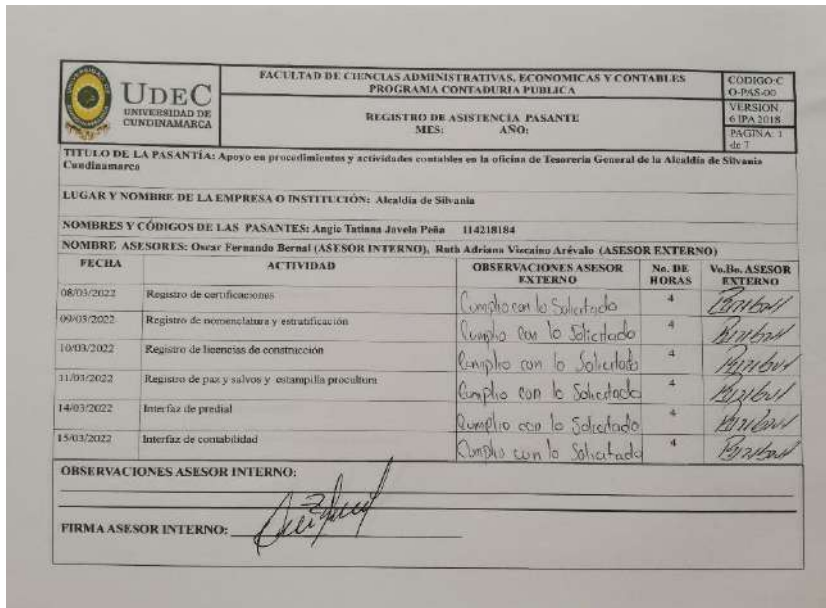 UDEC
UNIVERSIDAD DE
CUNDINAMARCA
FACULTAD DE CIENCIAS ADMINISTRATIVAS, ECONOMICAS Y CONTABLES
PROGRAMA CONTADURIA PUBLICA
REGISTRO DE ASISTENCIA PASANTE
MES: AÑO:
CODIGO:C
O-PAS-00
VERSION
6 IPA 2018
PAGINA: 1
de 7
TITULO DE LA PASANTÍA: Apoyo en procedimientos y actividades contables en la oficina de Tesorería General de la Alcaldía de Silvania
Cundinamarca
LUGAR Y NOMBRE DE LA EMPRESA O INSTITUCIÓN: Alcaldía de Silvania
NOMBRES Y CÓDIGOS DE LAS PASANTES: Angie Tatiana Javela Peña 114218184
NOMBRE ASESORES: Oscar Fernando Bernal (ASESOR INTERNO), Ruth Adriana Viscaino Arévalo (ASESOR EXTERNO)
FECHA ACTIVIDAD OBSERVACIONES ASESOR EXTERNO No. DE HORAS Vo.Bo. ASESOR EXTERNO
08/03/2022 Registro de certificaciones Cumplio con lo Solicitado 4
09/03/2022 Registro de nomenclatura y estratificación Cumplio con lo Solicitado 4
10/03/2022 Registro de licencias de construcción Cumplio con lo Solicitado 4
11/03/2022 Registro de paz y salvos y estampilla procultura Cumplio con lo Solicitado 4
14/03/2022 Interfaz de predial Cumplio con lo Solicitado 4
15/03/2022 Interfaz de contabilidad Cumplio con lo Solicitado 4
OBSERVACIONES ASESOR INTERNO:
FIRMA ASESOR INTERNO: